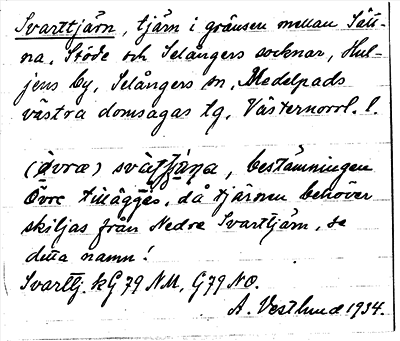 Svarttjärn, tjärn i gränsen mellan Sätt-
na, Stöde och Selångers socknar, Hul-
jens by, Selångers sn, Medelpads
västra domsagas tg, Västernorrl. l.
(övræ) , bestämningen
Övre tillägges, då tjärnen behöver
skiljas från Nedre Svarttjärn, se
detta namn!
Svarttj. kG 79 NV, G79 NO.
A. Vestlund 1934.